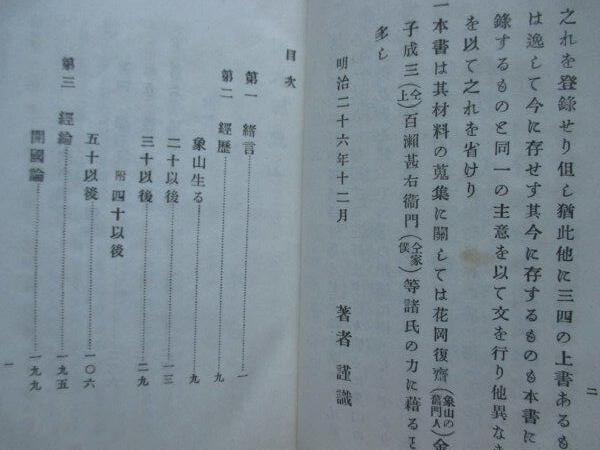 之れを登錄せり但し猶此他に三四の上書あるも
は逸して今に存せす其今に存するものも本書に
錄するものと同一の主意を以て文を行り他異なき
を以て之れを省けり
一本書は其材料の蒐集に關しては花岡復齋(象山の舊門人)金
子成三(仝上)百瀨甚右衞門(仝家僕)等諸氏の力に藉ると
多し
明治二十六年十二月
著者謹識
二
目次
第一 緖言……一
第二 經歷……九
象山生る……九
二十以後……一三
三十以後……二九
附四十以後
五十以後……一〇六
第三 經綸……一九五
開國論……一九九
一